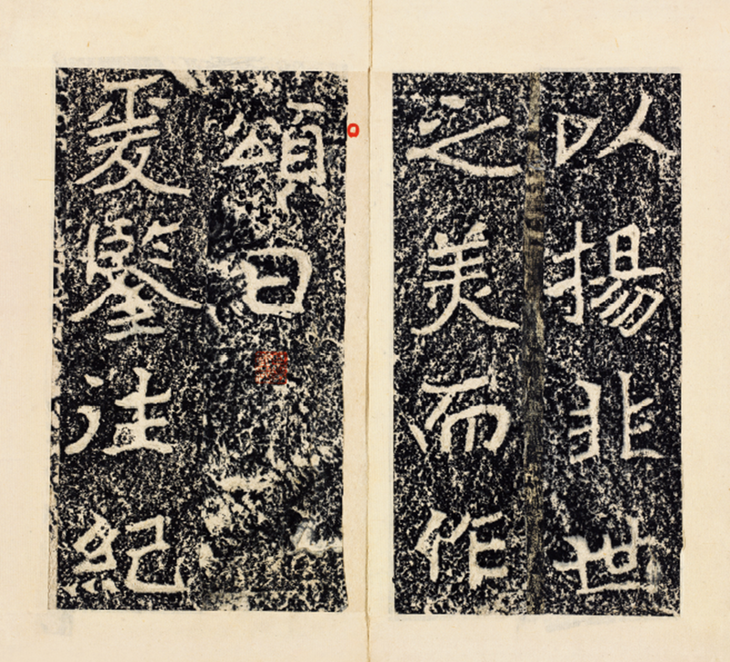 以揚非世
之美而作
頌曰
爰鑒往紀